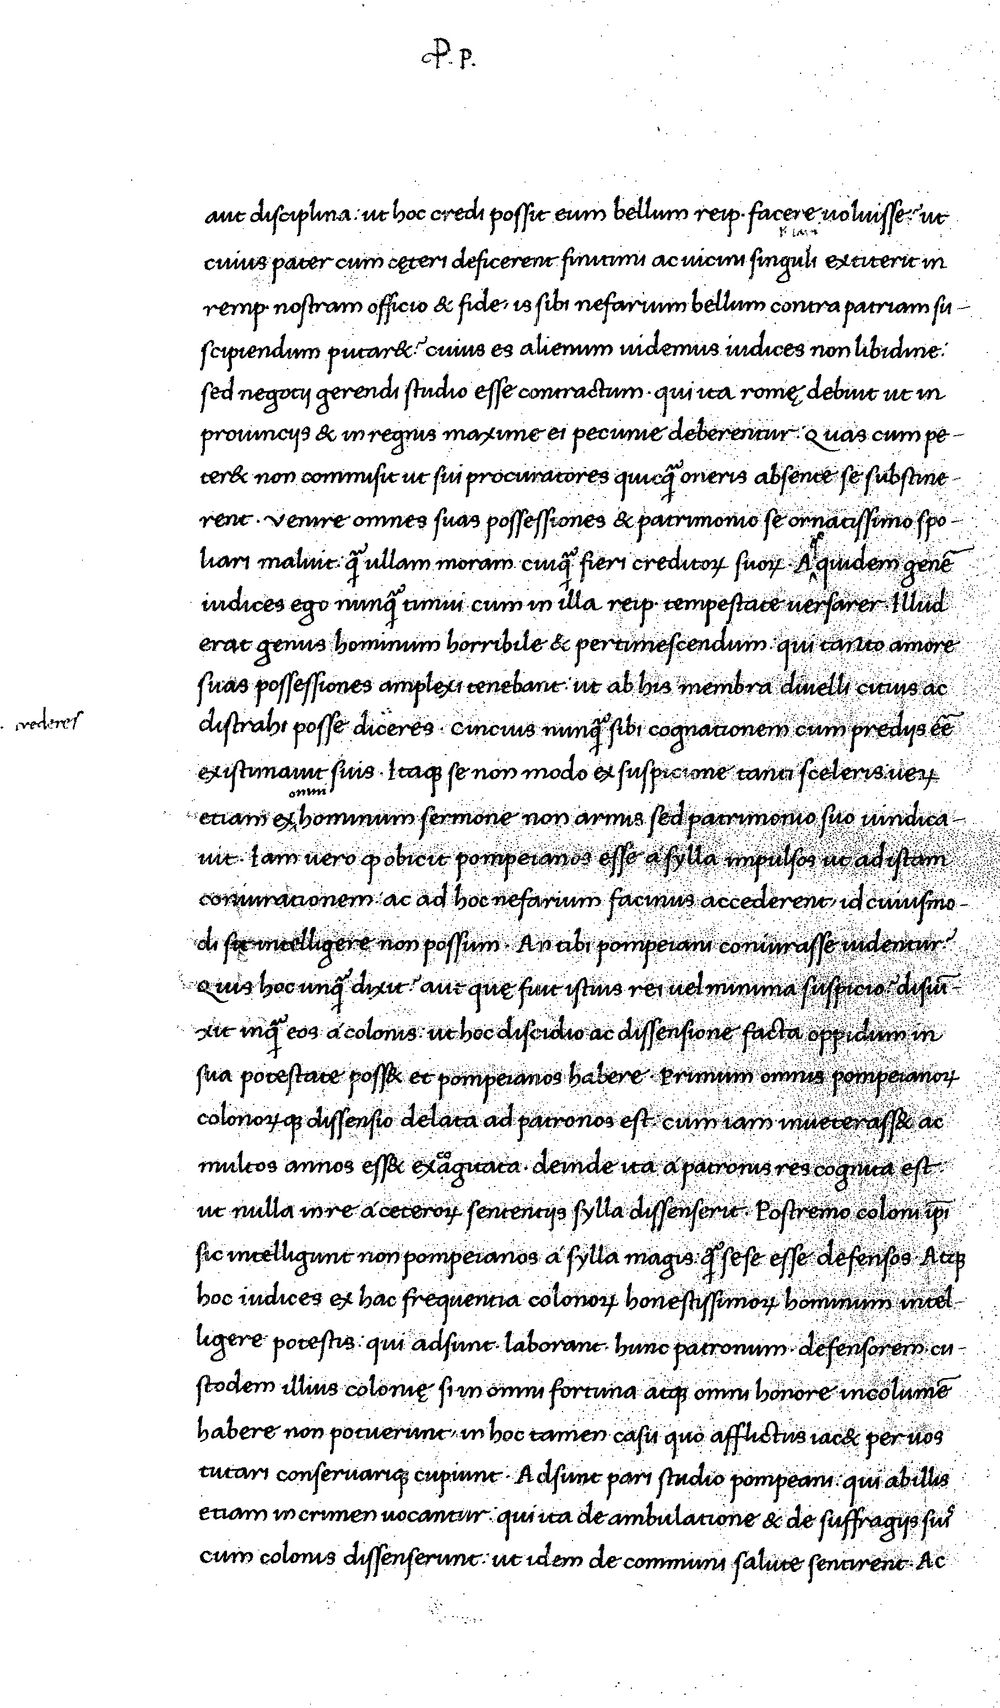 P. P.
aut disciplina: ut hoc credi possit eum bellum reip. facere uoluisse? ut
cuius pater cum cęteri deficerent finitimi ac uicini singuli extiterit in
remp. nostram officio & fide, is sibi nefarium bellum contra patriam su-
scipiendum putar&? cuius es alienum uidemus iudices non libidine:
sed negotij gerendi studio esse contractum. qui ita romę debuit ut in
prouincijs & in regnis maxime ei pecunie deberentur. Quas cum pe-
ter& non commisit ut sui procuratores quicq̃ oneris absente se substine-
rent. Venire omnes suas possessiones & patrimonio se ornatissimo spo-
liari maluit. q̃ ullam moram cuiq̃ fieri creditoꝝ suoꝝ. A quidem genē
iudices ego nunq̃ timui cum in illa reip. tempestate uersarer. Illud
erat genus hominum horribile & pertimescendum. qui tanto amore
suas possessiones amplexi tenebant: ut ab his membra diuelli citius ac
distrahi posse diceres. Cincius nunq̃ sibi cognationem cum predijs eē
crederes
existimauit suis. Itaqꝫ se non modo ex suspicione tanti sceleris ueꝝ
omni
etiam ex hominum sermone non armis sed patrimonio suo uindica-
uit. Iam uero ꝙ obicit pompeianos esse a sylla impulsos ut ad istam
coniurationem ac ad hoc nefarium facinus accederent, id cuiusmo-
di sit intelligere non possum. An tibi pompeiani coniurasse uidentur?
Quis hoc unq̃ dixit? aut quę fuit istius rei uel minima suspicio? disiū-
xit inq̃ eos a colonis: ut hoc discidio ac dissensione facta oppidum in
sua potestate poss& et pompeianos habere. Primum omnis pompeianoꝝ
colonoꝝqꝫ dissensio delata ad patronos est. cum iam inueterass& ac
multos annos ess& exagitata. deinde ita a patronis res cognita est.
ut nulla in re a ceteroꝝ sententijs sylla dissenserit. Postremo coloni ip̄i
sic intelligunt non pompeianos a sylla magis q̃ sese esse defensos. Atqꝫ
hoc iudices ex hac frequentia colonoꝝ honestissimoꝝ hominum intel-
ligere potestis: qui adsunt. laborant. hunc patronum. defensorem. cu-
stodem illius colonię si in omni fortuna atqꝫ omni honore incolumē
habere non potuerunt, in hoc tamen casu quo afflictus iac& per uos
tutari conseruariqꝫ cupiunt. Adsunt pari studio pompeani. qui ab illis
etiam in crimen uocantur. qui ita de ambulatione & de suffragijs suis
cum colonis dissenserunt: ut idem de communi salute sentirent. Ac